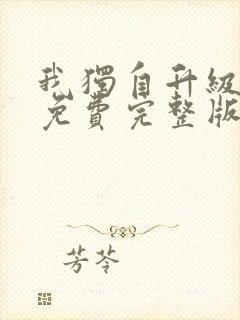 我獨自升級
免費完整版
芳苓